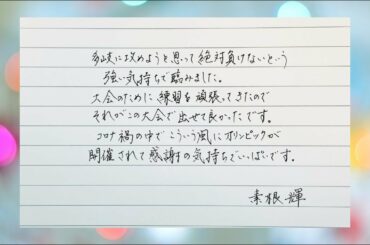 多岐に攻めようと思って絶対負けないという
強い気持ちで臨みました。
大会のために、練習を頑張ってきたので
それがこの大会で出せて良かったです。
コロナ禍の中でこういう風にオリンピックが
開催されて感謝の気持ちでいっぱいです。
素根 輝